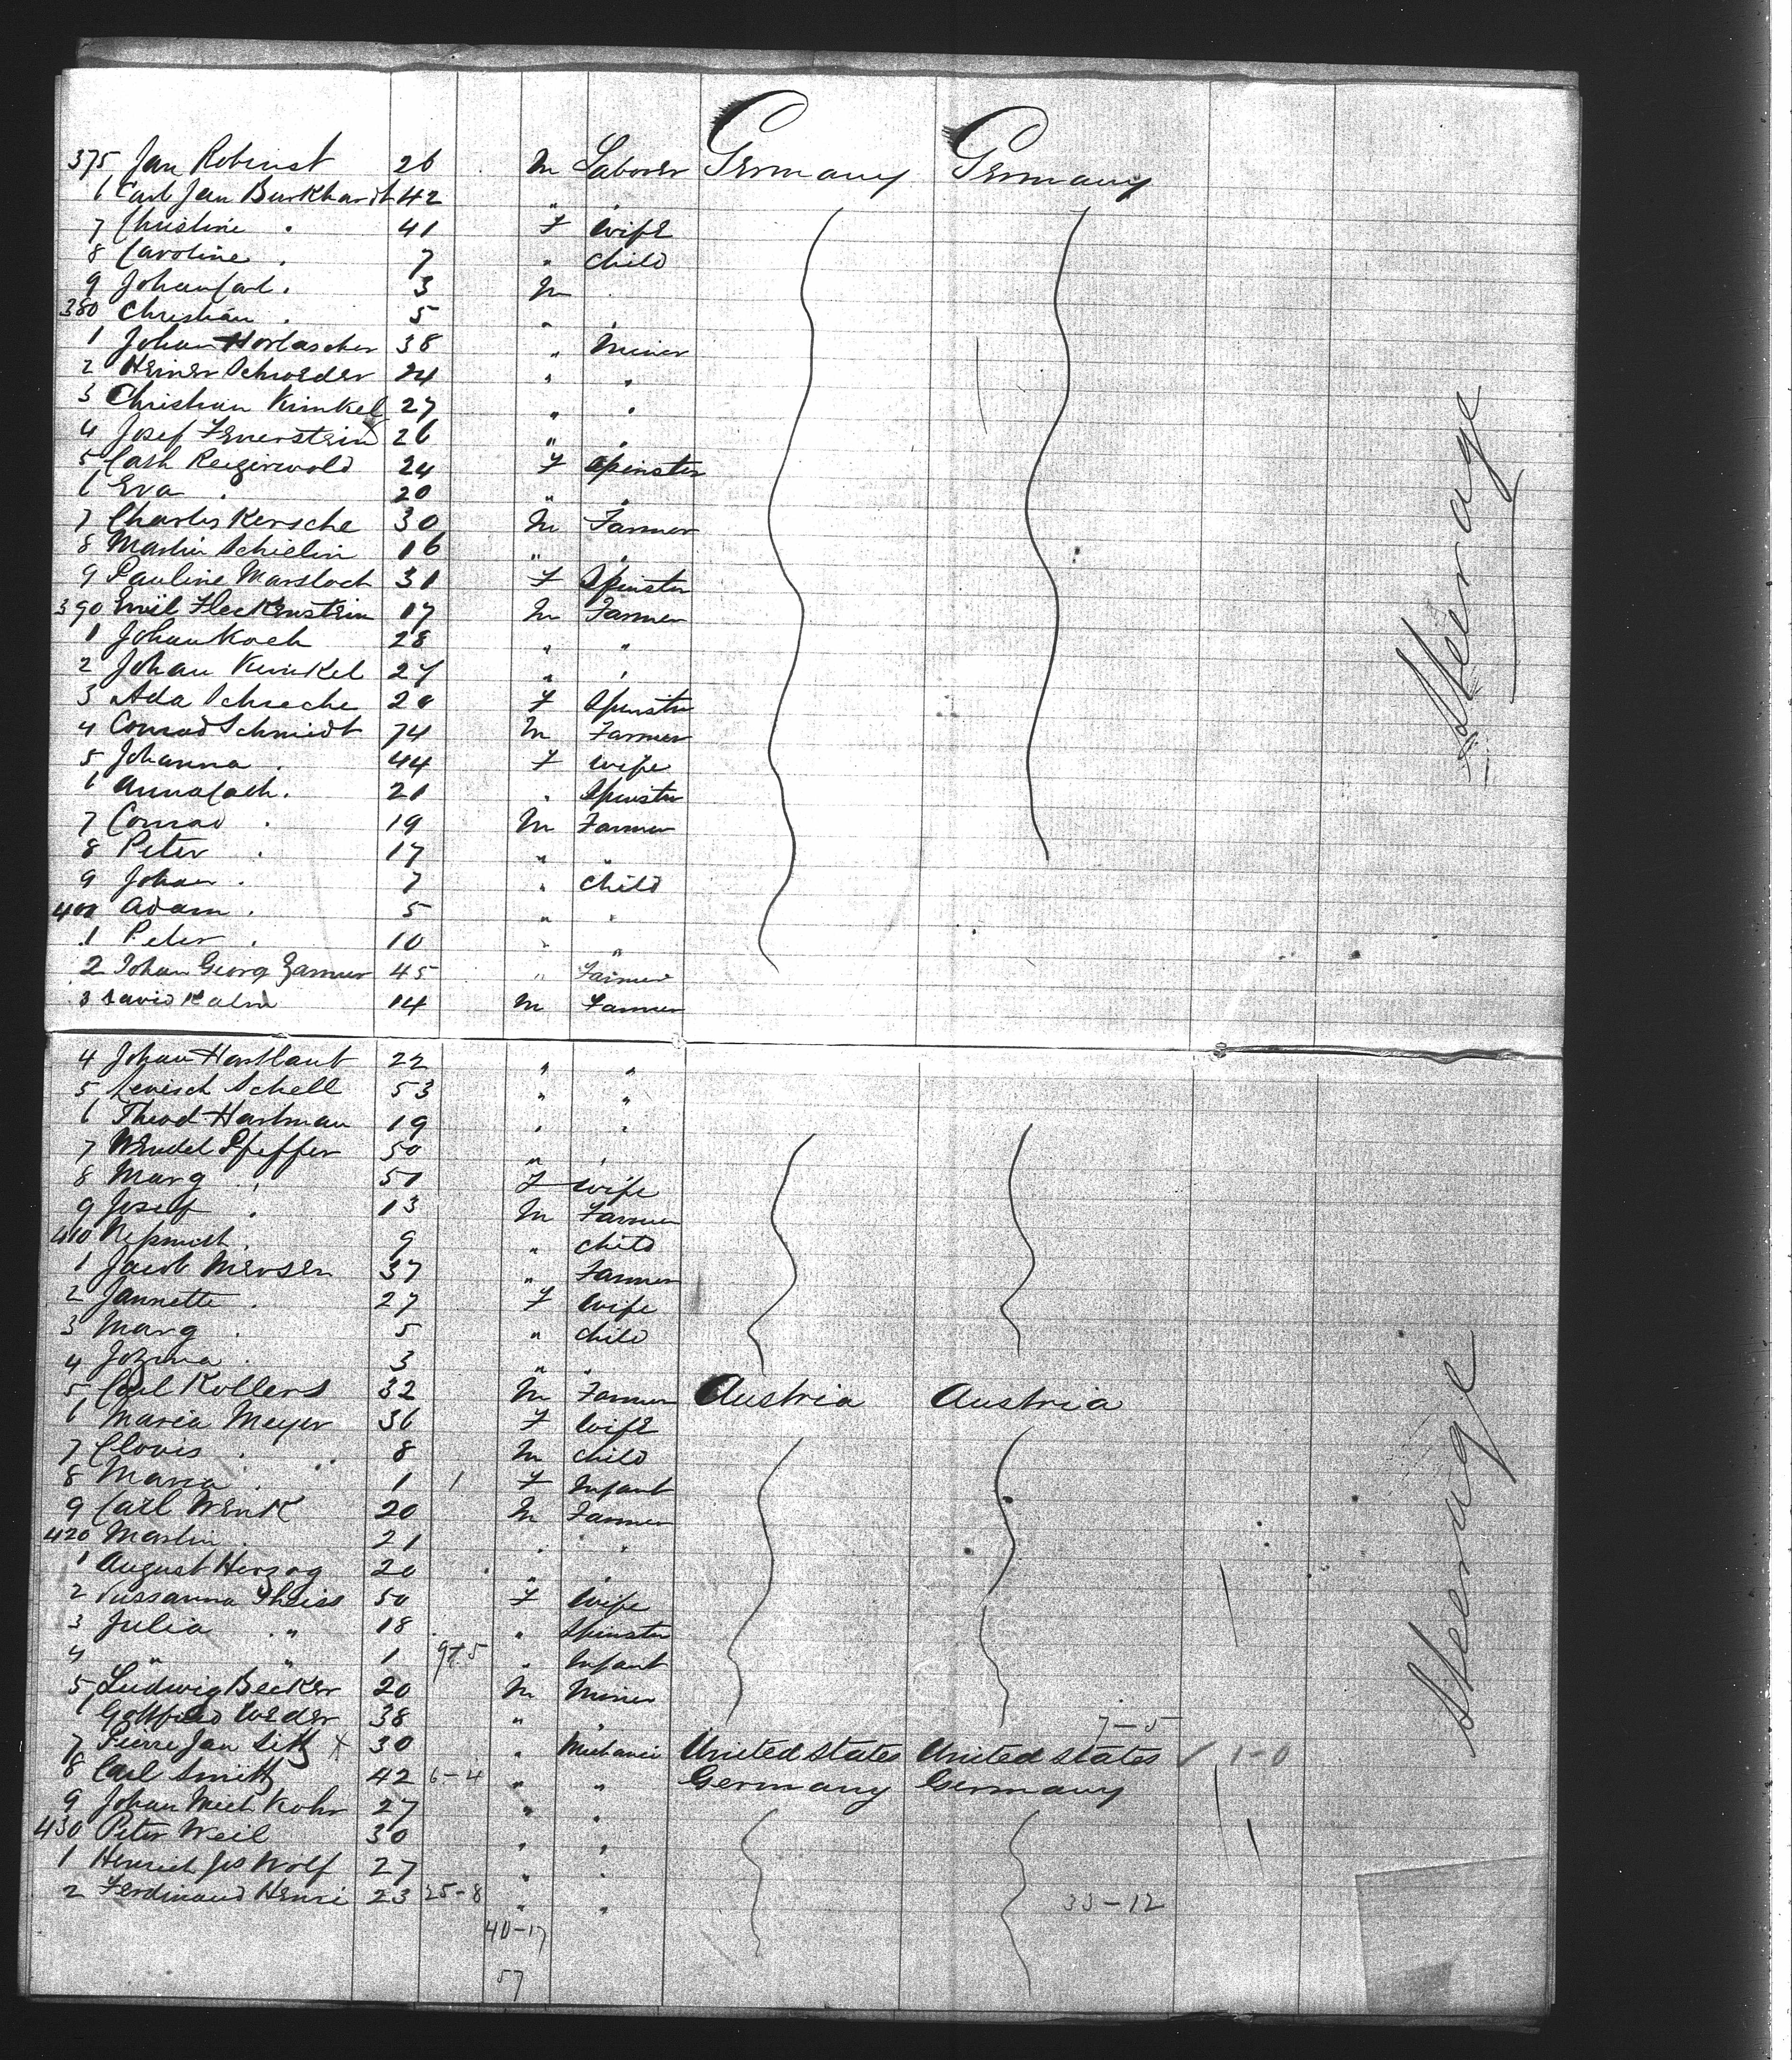 375 Jan Robinst 26 M Laborer Germany Germany
6 Carl Jan Burkhardt 42 " "
7 Christine " 41 F Wife
8 Caroline " 7 " Child
9 Johan Carl " 3 M
380 Christian " 5 " "
1 Johan Horlascher 38 " Miner
2 Heiner Schroeder 24 " "
3 Christian Kunkel 27 " "
4 Josef Feuerstein 26 " "
5 Cath 24 F Spinster
6 Eva " 20 " "
7 Charles Kersche 30 M Farmer
8 Martin Schielin 16 " "
9 Pauline Marsloch 31 F Spinster
390 Emil Fleckenstein 17 M Farmer
1 Johan Koch 28 " "
2 Johan Kunkel 27 " "
3 Ada Schreche 20 F Spinster
4 Conrad Schmidt 74 M Farmer
5 Johanna " 44 F Wife
6 Anna Cath " 21 " Spinster
7 Conrad " 19 M Farmer
8 Peter " 17 " "
9 Johan " 7 " Child
400 Adam " 5 " "
1 Peter " 10 " "
2 Johan Georg 45 " Farmer
3 David Kalm 14 M Farmer
4 Johan Hartlaub 22 " "
5 Schell 53 " "
6 Theod Hartman 19 " "
7 Wendel Pfeffer 50 " "
8 Marg " 50 F Wife
9 Josef " 13 M Farmer
410 " 9 " Child
1 Jacob Meusen 37 " Farmer
2 Jannette " 27 F Wife
3 Marg " 5 " Child
4 " 3 " "
5 Carl Kollers 32 M Farmer Austria Austria
6 Maria Meyer 36 F Wife
7 Clovis " 8 M Child
8 Maria " 1 1 F Infant
9 Carl Wenk 20 M Farmer
420 Martin " 21 " "
1 August Herzog 20 " "
2 Sussanna Theiss 50 F Wife
3 Julia " " 18 " Spinster
4 " " 1 9+5 " Infant
5 Ludwig Becker 20 M Miner
6 Gottfried Weder 38 " "
7-5
7 Pierre Jan Sitz x 30 " Mechanic United States United States ✓ 1-0
8 Carl Smitz 42 6-4 " " Germany Germany
9 Johan Mich Kohr 27 " "
430 Peter Weil 30 " "
1 Heinrich Jos Wolf 27 " "
2 Ferdinand Henri 23 25-8 " " 33-12
40-17
57
Steerage
Steerage